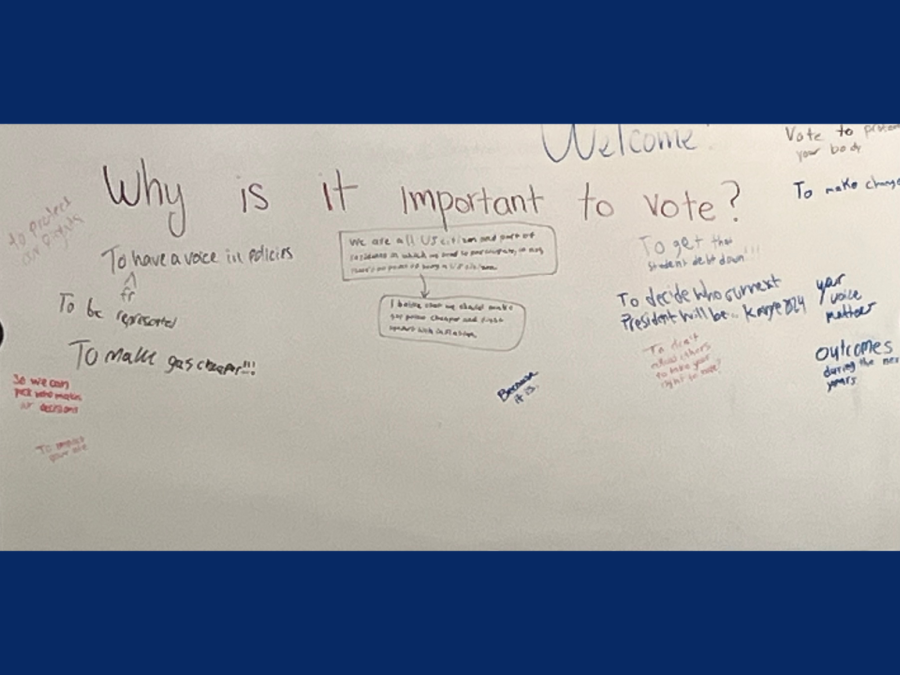 Welcome!
Vote to
your body
Why is it important to vote?
To make change
to protect
our rights
To have a voice in policies
fr
To be represented
To make gas cheaper!!!
We are all US citizen and part of
in which we need to participate, if not
there's no point of being a US citizen.
I believe that we should make
gas prices cheaper and fight
with inflation.
To get that
student debt down!!!
To decide who current
President will be.. Kanye 2024
your
voice
matters
To don't
allow others
to take your
right to vote!
outcomes
during the next
years.
Because
it is.
So we can
pick who makes
decisions
To
your